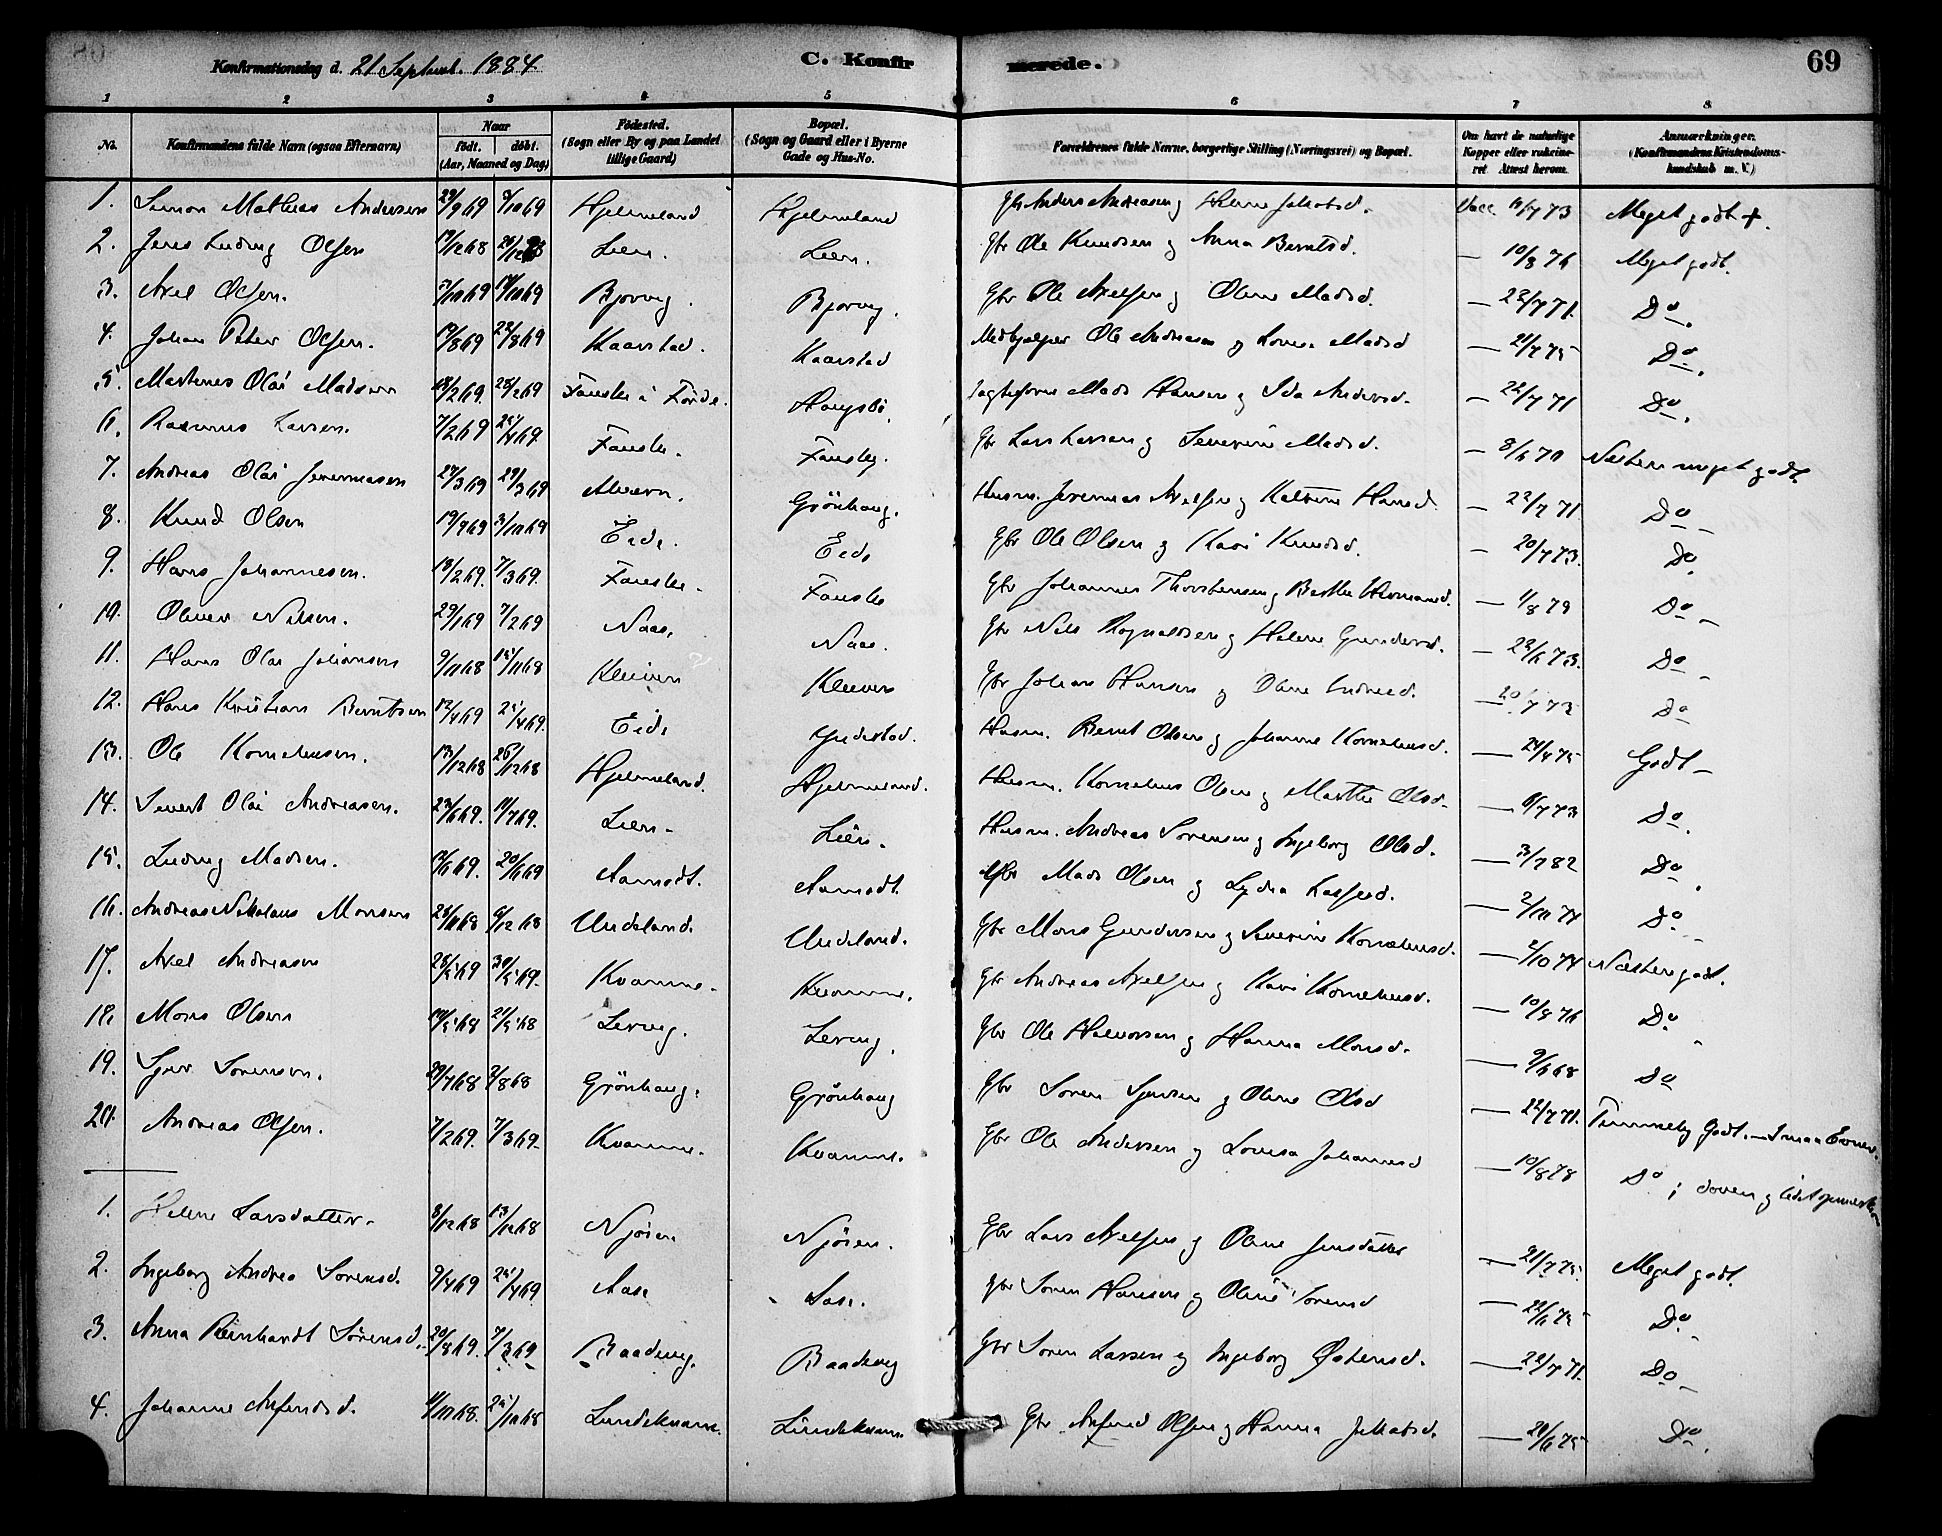 Konfirmationsdag d. 21 Septemb. 1884. C. Konfirmerede. 69
1 2 3 4 5 6 7 8
No. Konfirmandens fulde Navn (ogsaa Efternavn) Naar født. døbt. (Aar, Maaned og Dag) Fødested. (Sogn eller By og paa Landet tillige Gaard) Bopæl. (Sogn og Gaard eller i Byerne Gade og Hus-No. Forældrenes fulde Navne, borgerlige Stilling (Næringsvei) og Bopæl. Om havt de naturlige Kopper eller vakcineret Attest herom. Anmærkninger. (Konfirmandens Kristendomskundskab m. V.)
1. Simon Mathias Andersen 29/9 69 3/10 69 Hjelmeland Hjelmeland Gbr Anders Andreasen og Helene Jakobsd. Vacc 73 Meget godt +.
2. Jens Ludvig Olsen 19/12 68 26/12 68 Lien. Lien. Gbr Ole Knudsen og Anna Berntsd. — 10/8 76 Meget godt.
3. Axel Olsen. 3/10 69 17/10 69 Bjorvig. Bjorvig. Gbr Ole Axelsen og Oline Madsd. — 22/7 71. Do.
4. Johan Peter Olsen. 19/8 69 22/8 69 Kaarstad. Kaarstad Medhjelper Ole Andreasen og Lovisa Madsd — 21/7 75 Do.
5. Martines Olai Madsen 18/2 69. 28/2 69 Fauske i Førde. Haugsbø. Mads Hansen og Ida Andersd. — 22/7 71 Do.
6. Rasmus Larsen. 7/2 69 25/4 69. Fauske. Fauske. Gbr Lars Larsen og Severine Madsd. — 8/6 70 Næsten meget godt.
7. Andreas Olai Jeremiasen 27/3 69 29/3 69 Alværn. Grönhaug. Husm. Jeremias Axelsen og Kathrine Hansd. — 22/7 71. Do —
8. Knud Olsen 19/9 69 3/10 69 Eide. Eide Gbr Ole Olsen og Kari Knudsd. — 20/7 73. Do
9. Hans Johannesen. 13/2 69. 7/3 69. Fauske. Fauske Gbr Johannes Thorstensen og Berthe Hermansd. — 1/8 79 Do —
10. Oliver Nilsen. 29/1 69 7/2 69 Naas. Naas. Gbr Nils Rognaldsen og Helene Gundersd. — 22/6 73. Do —
11. Hans Olai Johansen 9/11 68 15/11 68 Kleiven Kleiven Gbr Johan Hansen og Oline Andreasd. — 20/7 73 Do
12. Hans Kristian Berntsen 12/4 69 25/4 69. Eide Gjedestad. Husm. Bernt Olsen og Johanne Korneliusd. — 24/4 75 Godt —
13. Ole Korneliusen. 13/12 68 26/12 68 Hjelmeland. Hjelmeland. Husm. Kornelius Olsen og Marthe Olsd. — 6/7 73 Do.
14. Sivert Olai Andreasen. 23/6 69. 11/7 69. Lien. Lien. Husm. Andreas Sorensen og Ingeborg Olsd. — 3/7 82 Do.
15. Ludvig Madsen. 69. 20/6 69 Aamodt. Aamodt. Gbr Mads Olsen og Lydia Kaspersd. — 2/10 74 Do.
16. Andreas Nikolaus Monsen 28/11 68 6/12 68 Undeland. Undeland. Gbr Mons Gundersen og Severine Korneliusd. — 2/10 74 Næsten godt.
17. Axel Andreasen 28/5 69 30/5 69. Kvamme. Kvamme. Gbr Andreas Axelsen og Kari Korneliusd. — 10/8 76 Do.
18. Mons Olsen 19/5 68 21/5 68 Lervig. Lervig. Gbr Ole Halvorsen og Hanna Monsd. — 9/6 68 Do
19. Sjur Sorensen. 29/7 68 2/8 68 Grönhaug. Grønhaug Gbr Soren Sjursen og Oline Olsd — 22/7 71. Temmelig Godt. — Smaa Evner.
20. Andreas Olsen. 7/2 69. 7/3 69. Kvamme. Kvamme. Gbr Ole Andersen og Lovisa Johannesd — 10/8 78 Do ; doven og lidet
1. Helene Larsdatter. 8/12 68 13/12 68 Njösen Njösen. Gbr Lars Axelsen og Oline Jensdatter — 21/7 75. Meget godt.
2. Ingeborg Andrea Sorensd. 9/4 69 25/4 69. Aase Aase. Gbr Soren Hansen og Oline Sorensd — 22/6 75 Do.
3. Anna Reinhardt Sörensd. 20/8 69. 7/3 69 Baadvig. Baadvig Gbr Soren Larsen og Ingeborg Östensd. — 22/7 71. Do —
4. Johanne Anfindsd. 4/10 68. 25/10 68 Lundekvam. Lundekvam. Gbr Anfind Olsen og Hanna Jakobsd. — 20/6 75 Do.